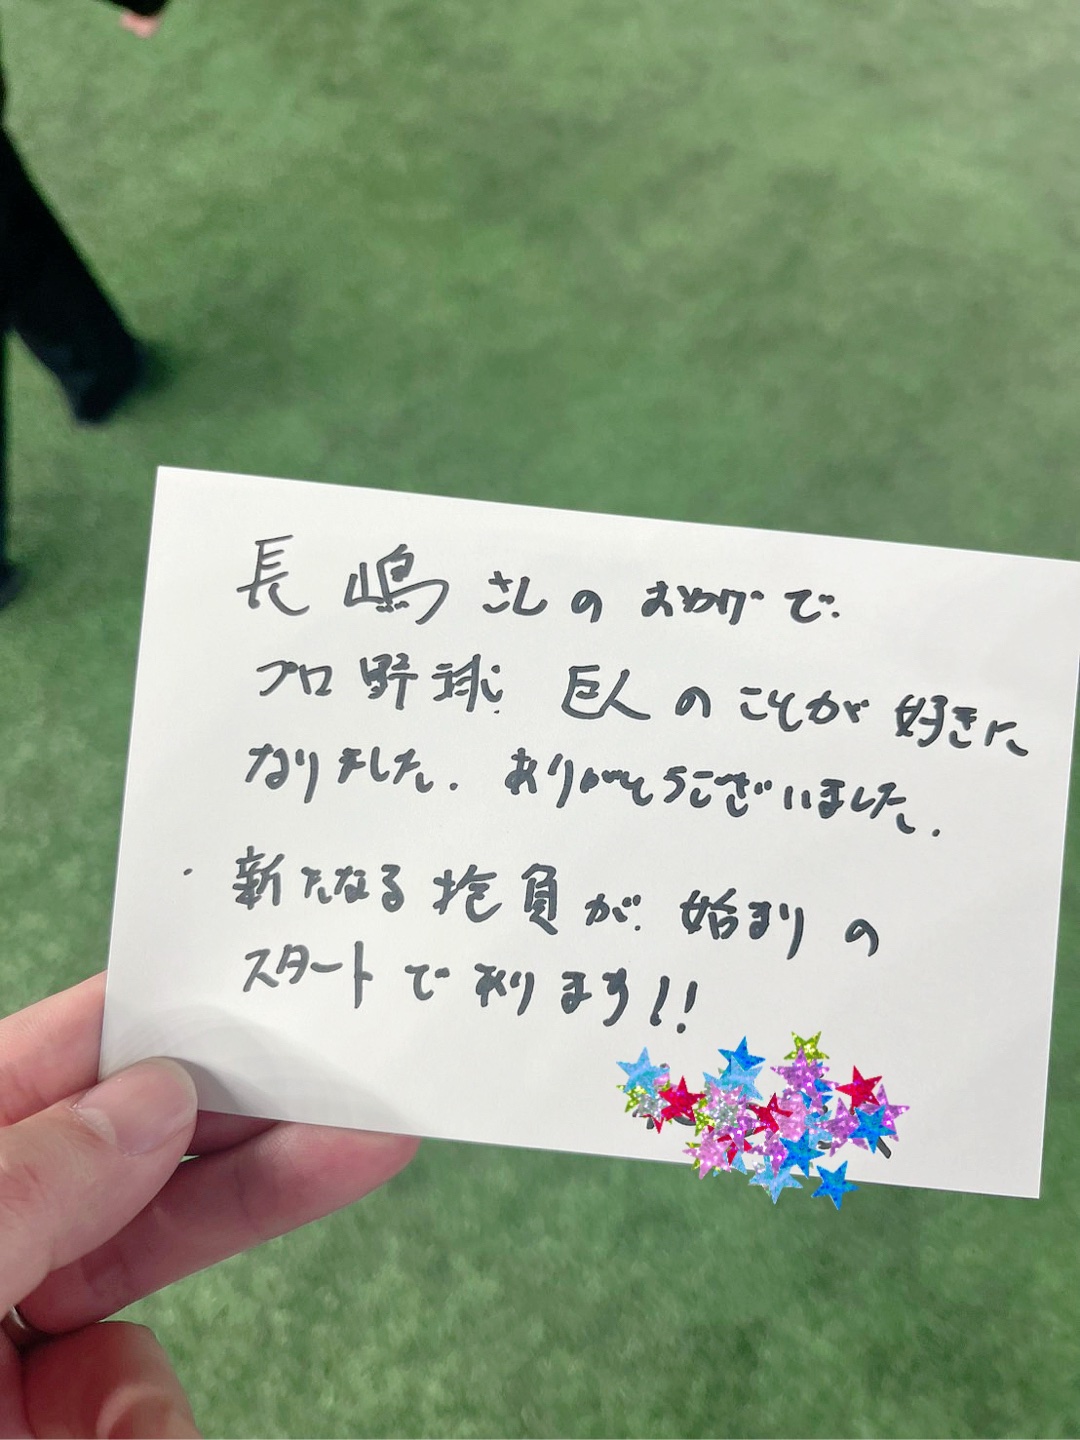 長嶋さんのおかげで
プロ野球 巨人のことが好きに
なりました. ありがとうございました.
・新たなる抱負が始まりの
スタートであります!!